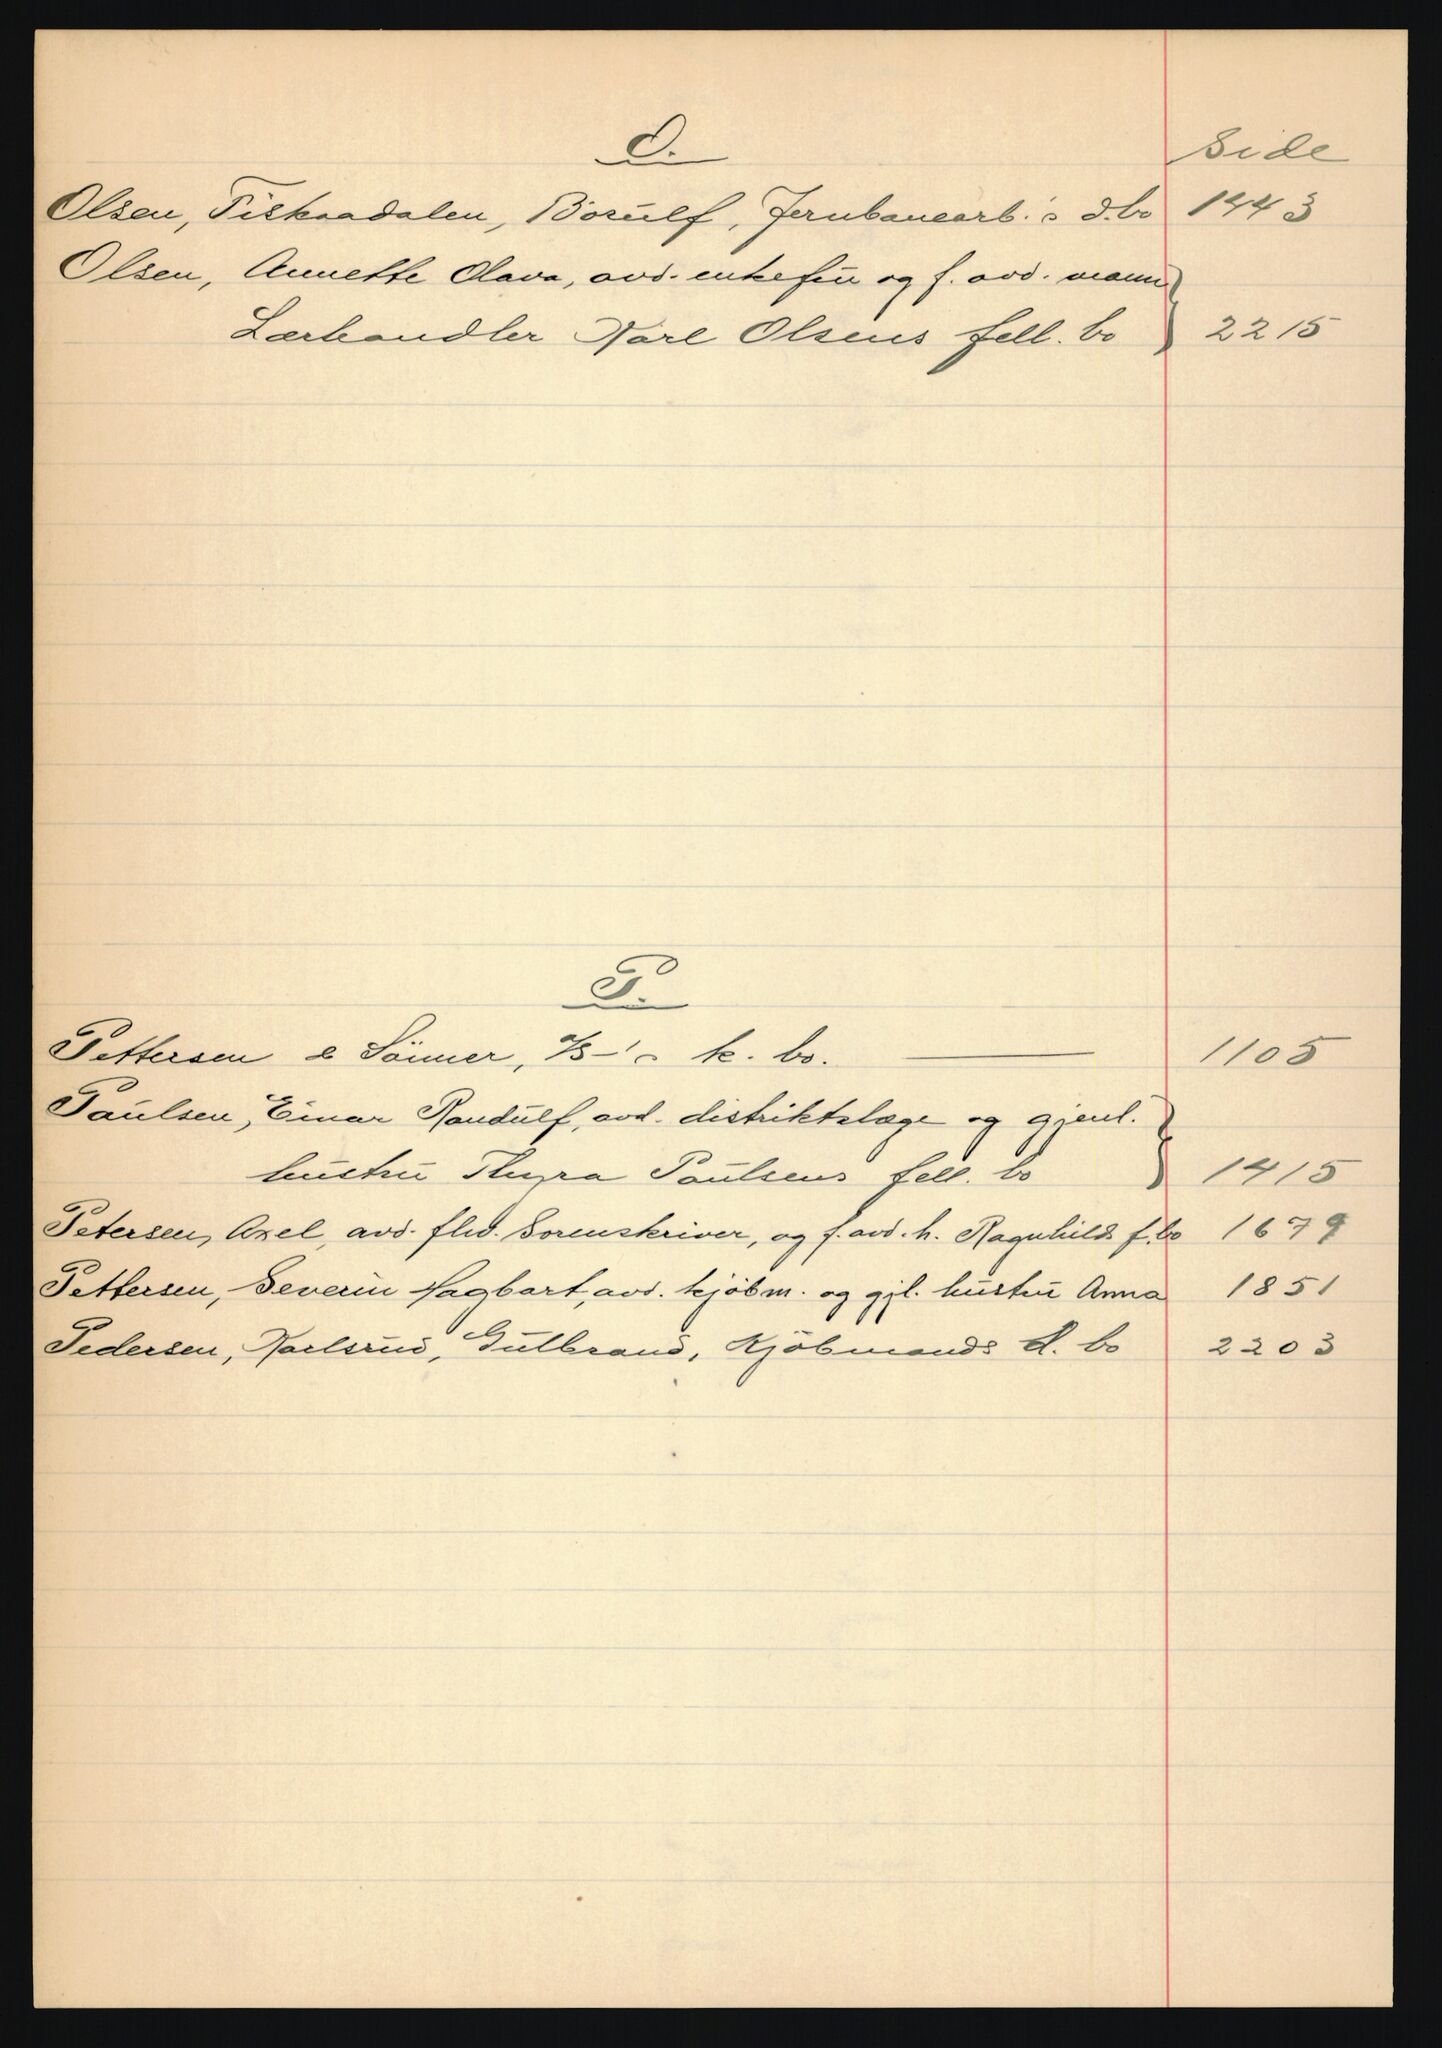 O.
Side
Olsen, Fiskaadalen, Børulf, Jernbanearb.'s d.bo 1443
Olsen, Annette Olava, avd. enkefru og f. avd. mann
Lærhandler Karl Olsens fell. bo 2215
P.
Pettersen & Sönner, A/S-'s k. bo. 1105
Paulsen, Einar Randulf, avd. distriktslæge og gjenl.
hustru Thyra Paulsens fell. bo 1415
Petersen, Axel, avd. fhv. Sorenskriver, og f. avd. h. Ragnhilds f.bo 1679
Pettersen, Severin Hagbart, avd. kjöbm. og gjl. hustru Anna 1851
Pedersen, Karlsrud, Gulbrand, Kjöbmands d. bo 2203